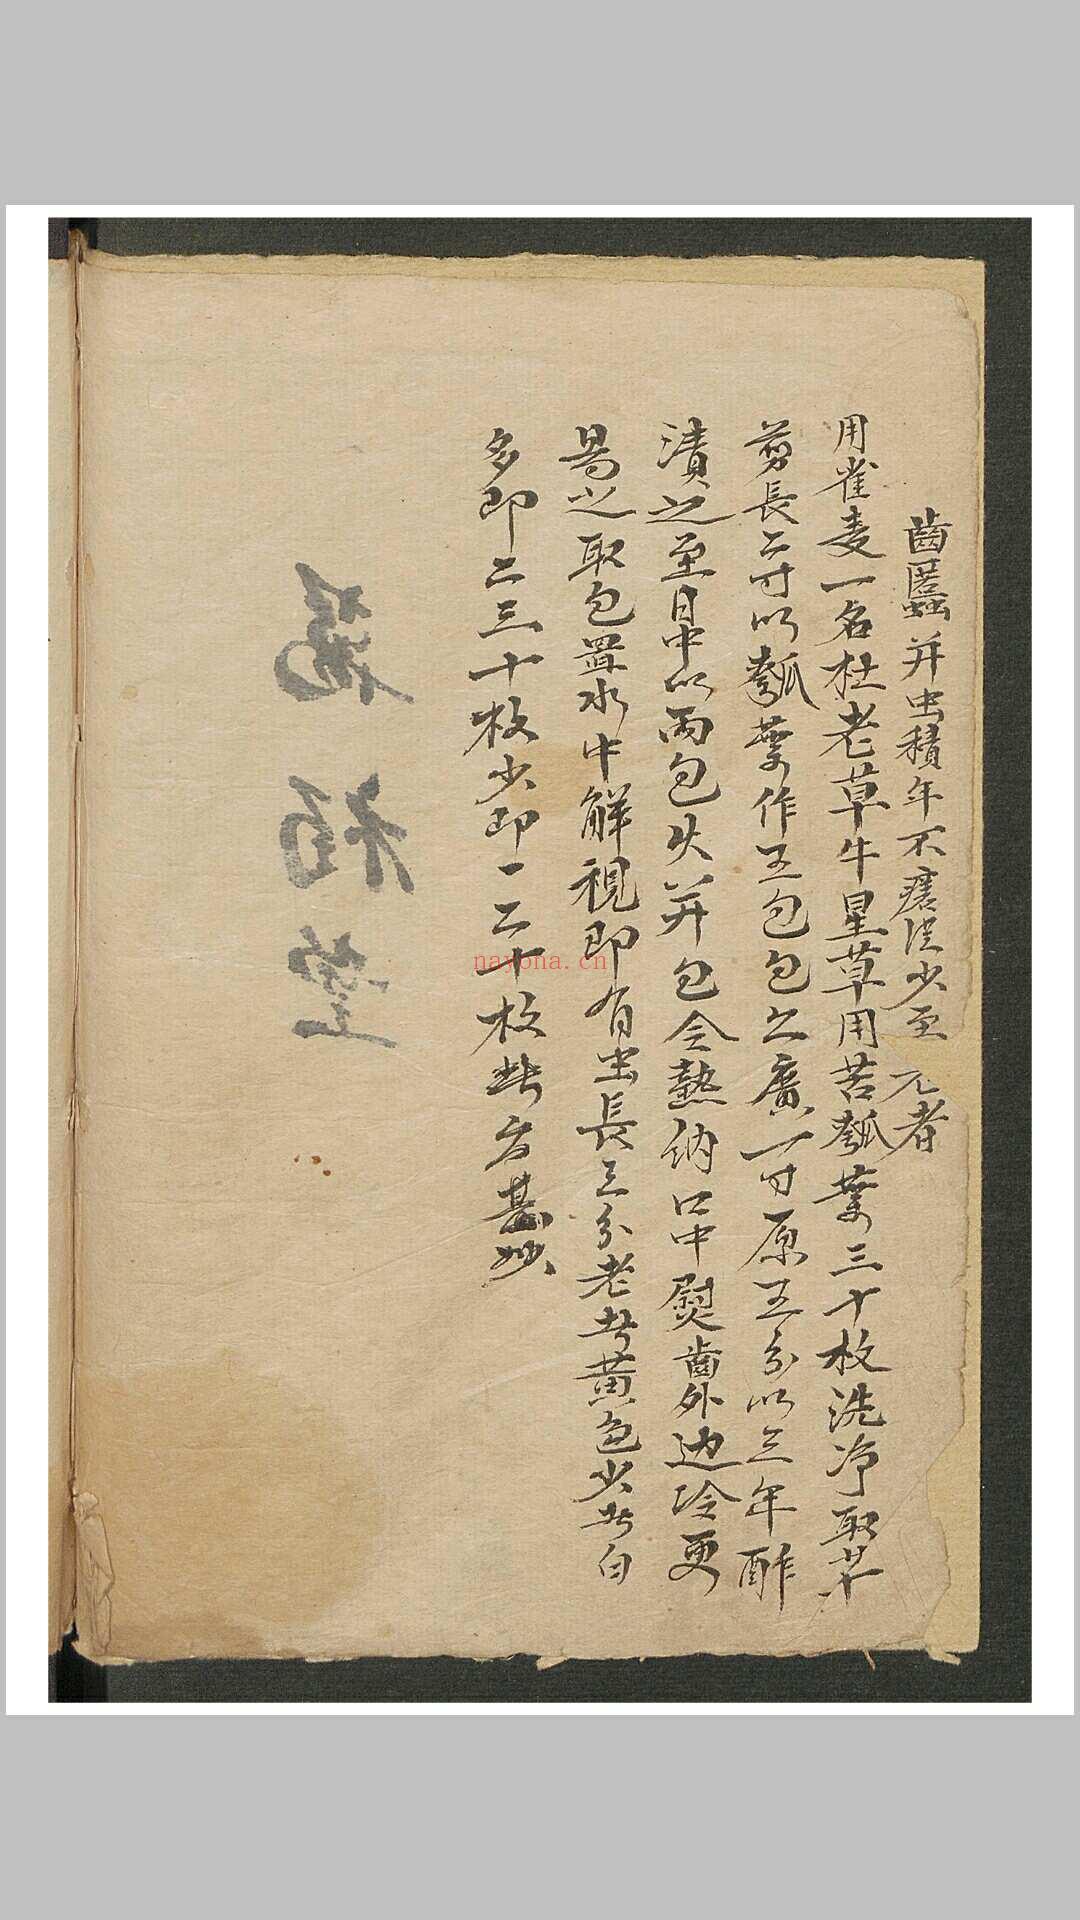 齒䘌并虫積年不瘥從少至元者
用雀麦一名杜老草牛星草用苦瓠葉三十枚洗净取草
剪長二寸以瓠葉作五包包之廣一寸厚五分以三年酢
漬之至日中以两包火并包令熱納口中熨齒外边冷更
易之取包置水中解視即有虫長三分老者黄色少者白
多即二三十枚少即一二十枚此方甚妙
nayona.cn